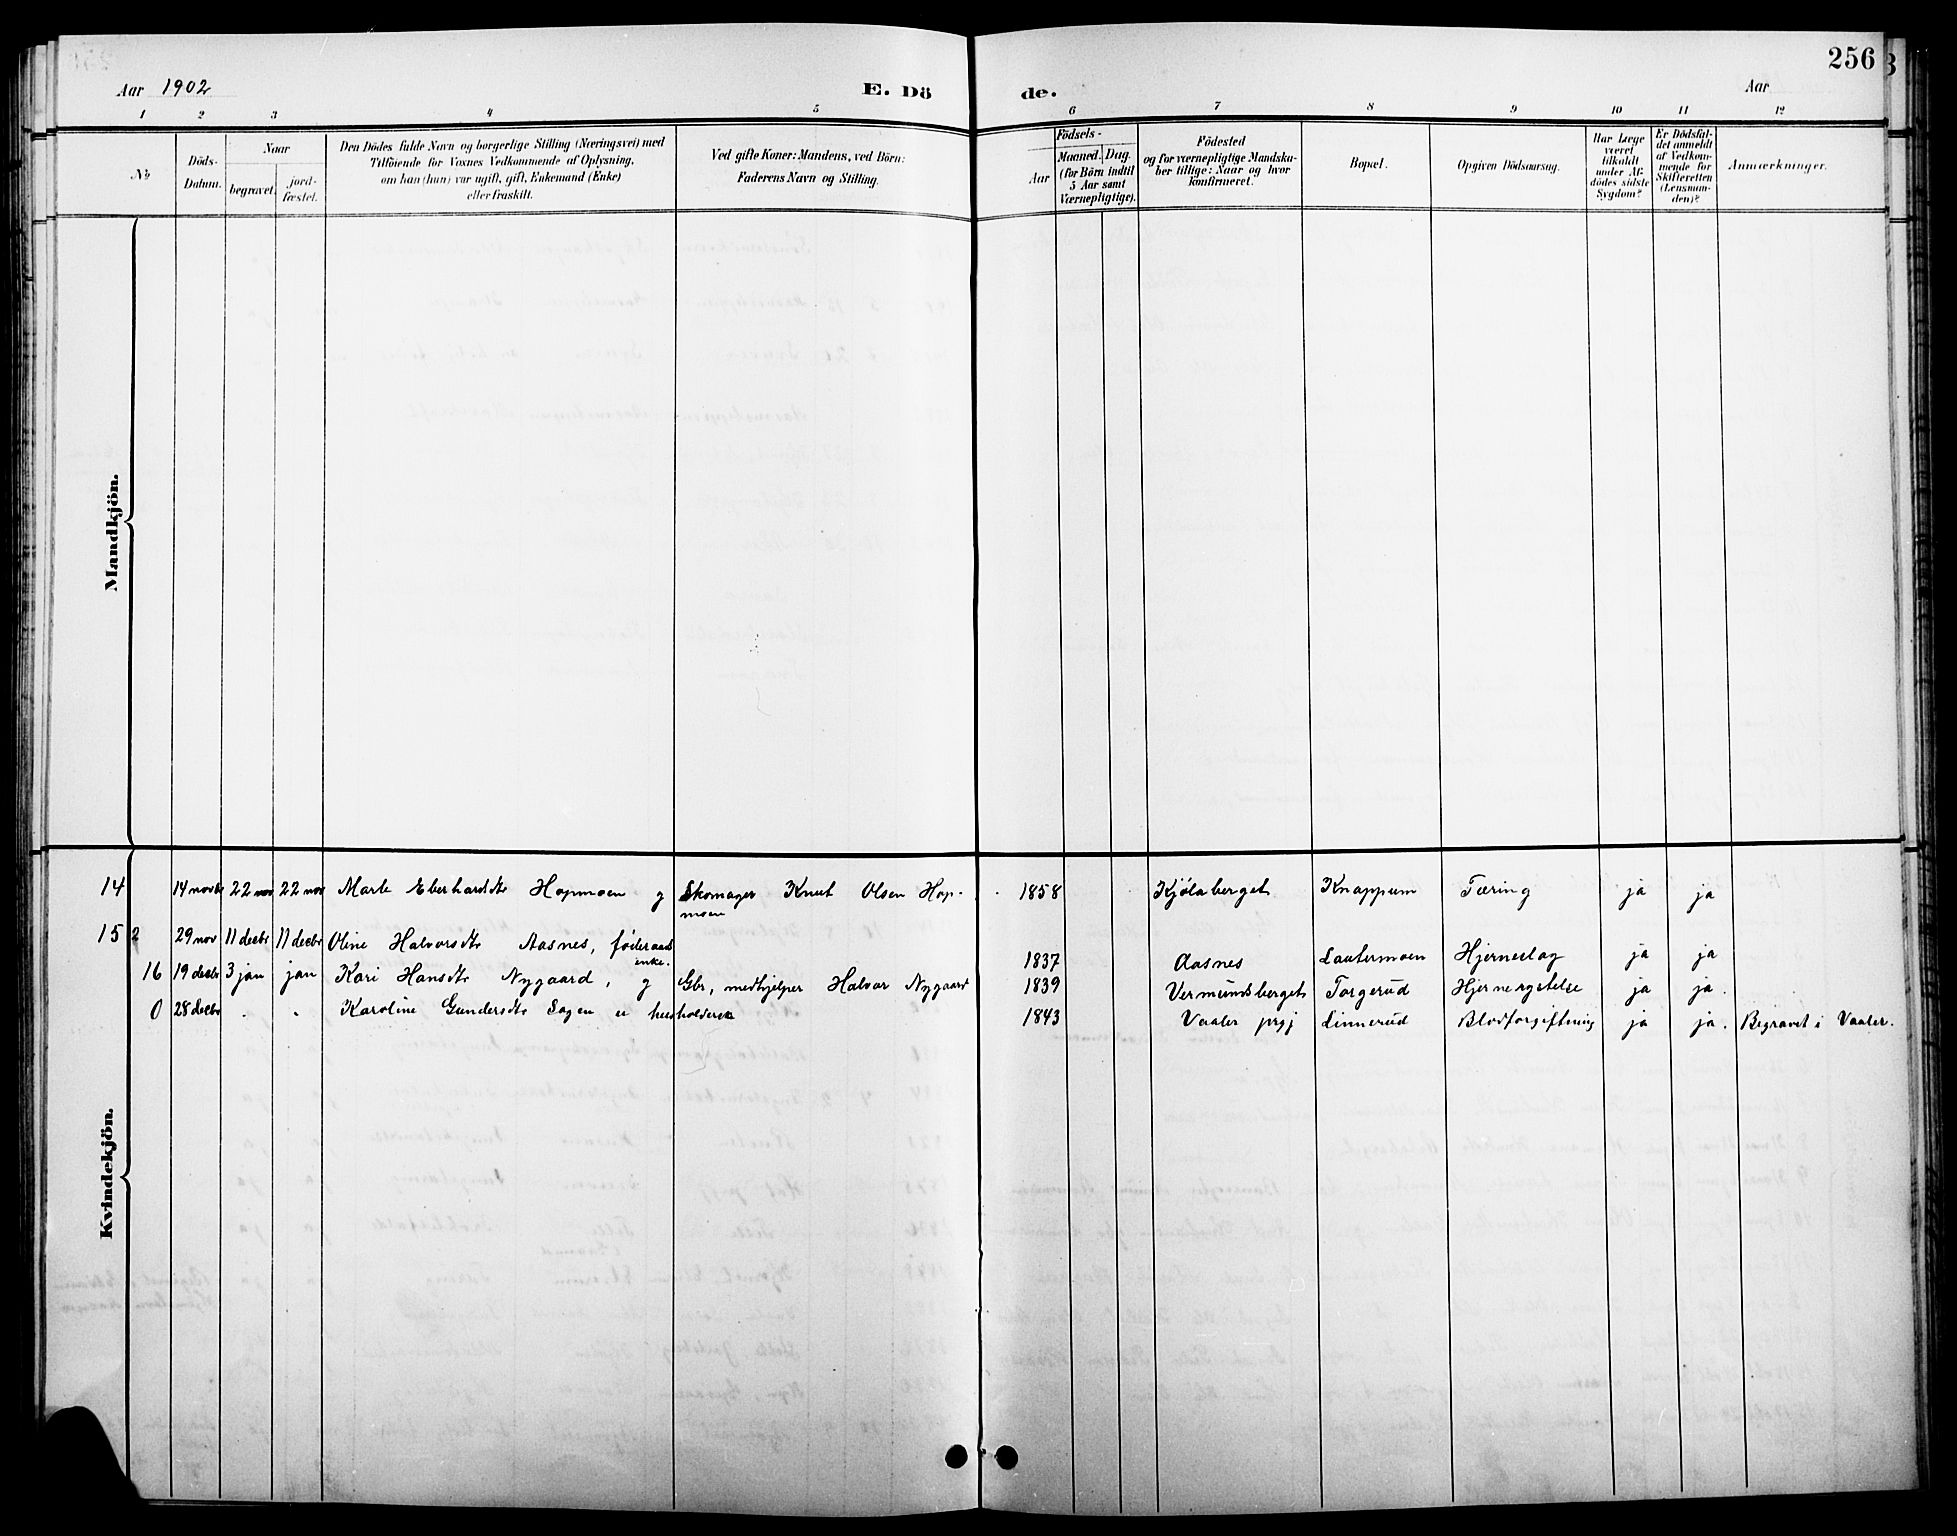 256
Aar 1902 E. Dö de. Aar
1 2 3 4 5 6 7 8 9 10 11 12
No
Döds-
Datum.
Naar
begravet.
jord-
fæstet.
Den Dödes fulde Navn og borgerlige Stilling (Næringsvei) med
Tilföiende for Voxnes Vedkommende af Oplysning,
om han (hun) var ugift, gift, Enkemand (Enke)
eller fraskilt.
Ved gifte Koner: Mandens, ved Börn:
Faderens Navn og Stilling.
Födsels-
Aar
Maaned. Dag.
(for Börn indtil
5 Aar samt
Værnepligtige).
Födested
og for værnepligtige Mandska-
ber tillige: Naar og hvor
konfirmeret.
Bopæl.
Opgiven Dödsaarsag.
Har Læge
været
tilkaldt
under Af-
dödes sidste
Sygdom?
Er Dödsfal-
det anmeldt
af Vedkom-
mende for
Skifteretten
(Lensman-
den)?
Anmærkninger.
Mandkjön.
Kvindekjön.
14 14 novbr 22 nov 22 nov Marte Eberhardsdtr Hopmoen g Skomager Knut Olsen Hop- 1858 Kjølaberget Knappum Tæring ja ja
moen
15 2 29 nov 11 decbr 11 decbr Oline Halvorsdtr Aasnes, føderaads 1837 Aasnes Lautermoen Hjerneslag ja ja
enke.
16 19 decbr 3 jan jan Kari Hansdtr Nygaard, g Gbr, medhjelper Halvor Nygaard 1839 Vermundsberget Torgerud Hjernerystelse ja ja.
0 28 decbr . " Karoline Gundersdtr Sagen e husholderske 1843 Vaaler prgj Linnerud Blodforgiftning ja ja. Begravet i Vaaler.